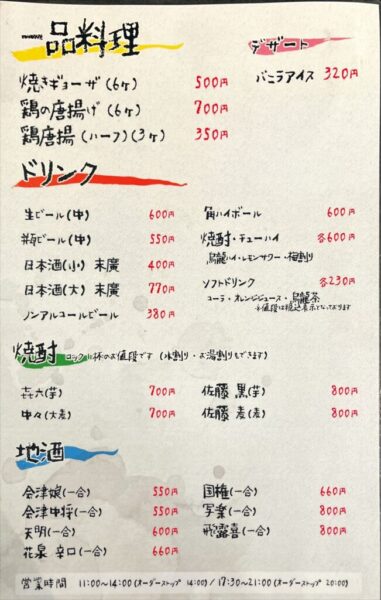 一品料理
焼きギョーザ(6ヶ) 500円
鶏の唐揚げ(6ヶ) 700円
鶏唐揚(ハーフ)(3ヶ) 350円
デザート
バニラアイス 320円
ドリンク
生ビール(中) 600円
瓶ビール(中) 550円
日本酒(小) 末廣 400円
日本酒(大) 末廣 770円
ノンアルコールビール 380円
角ハイボール 600円
焼酎・チューハイ 各600円
烏龍ハイ・レモンサワー・梅割り
ソフトドリンク 各230円
コーラ・オレンジジュース・烏龍茶
※値段は税込表示となっております
焼酎 コップ1杯のお値段です (水割り・お湯割りもできます)
㐂六(芋) 700円
中々(大麦) 700円
佐藤 黒(芋) 800円
佐藤 麦(麦) 800円
地酒
会津娘(一合) 550円
会津中将(一合) 550円
天明(一合) 600円
花泉 辛口(一合) 660円
国権(一合) 660円
写楽(一合) 800円
飛露喜(一合) 800円
営業時間 11:00~14:00(オーダーストップ 14:00) / 17:30~21:00(オーダーストップ 20:00)